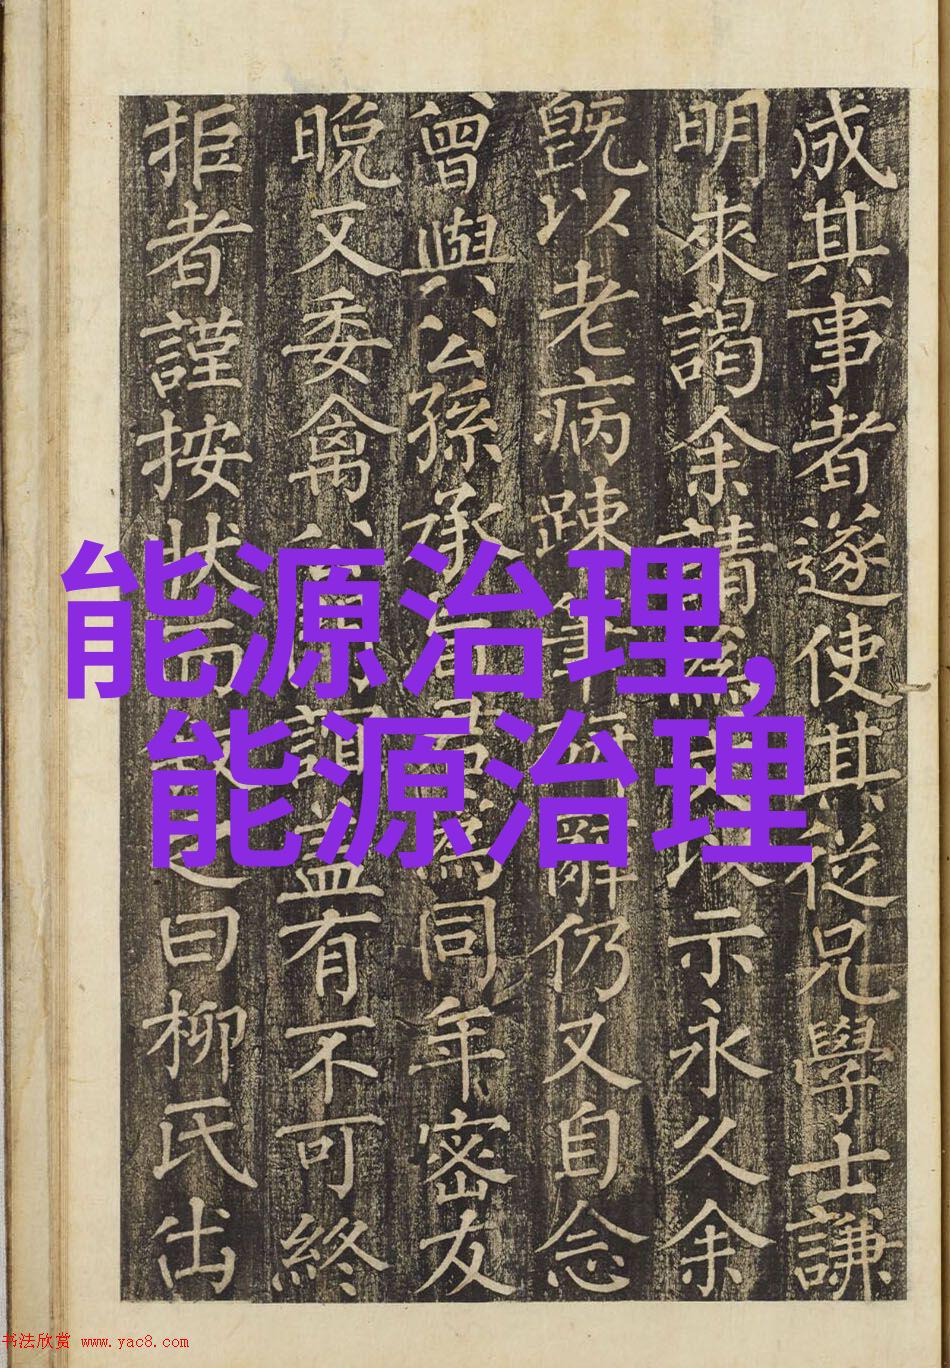 成其事者遂使其從兄學士謙
明來謁余請為以示永久余
旣以老病踈筆辭仍又自念
曾與公孫承為同年密友
晚又委禽誼蓋有不可終
拒者謹按狀而叙之曰柳氏出
能源治理,
能源治理
书法欣赏 www.yac8.com